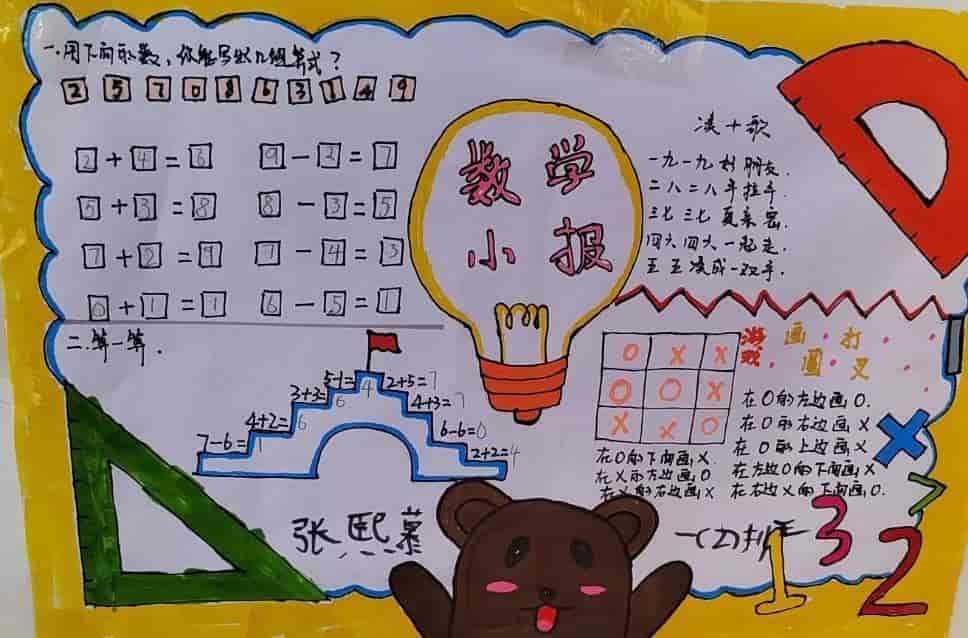 一.用下面的数，你能写出几组算式？
2 5 7 0 8 6 3 1 4 9
2+4=6 9-2=7
5+3=8 8-3=5
7+2=9 7-4=3
0+1=1 6-5=1
二.算一算.
7-6=1
4+2=6
3+3=6
5-1=4
2+5=7
4+3=7
6-6=0
2+2=4
数学
小报
凑十歌
一九一九好朋友.
二八二八手拉手.
三七三七
四六四六一起走.
五五凑成一双手.
O X X
O O X
X X O
游戏
画圆
打叉
在O的左边画O.
在O的右边画X
在O的上边画X
在O的下面画X.
在左边O的下面画X
在X的左边画O
在X的右边画X
在右边X的下面画O.
张熙慕
一(2)班
1 3 2